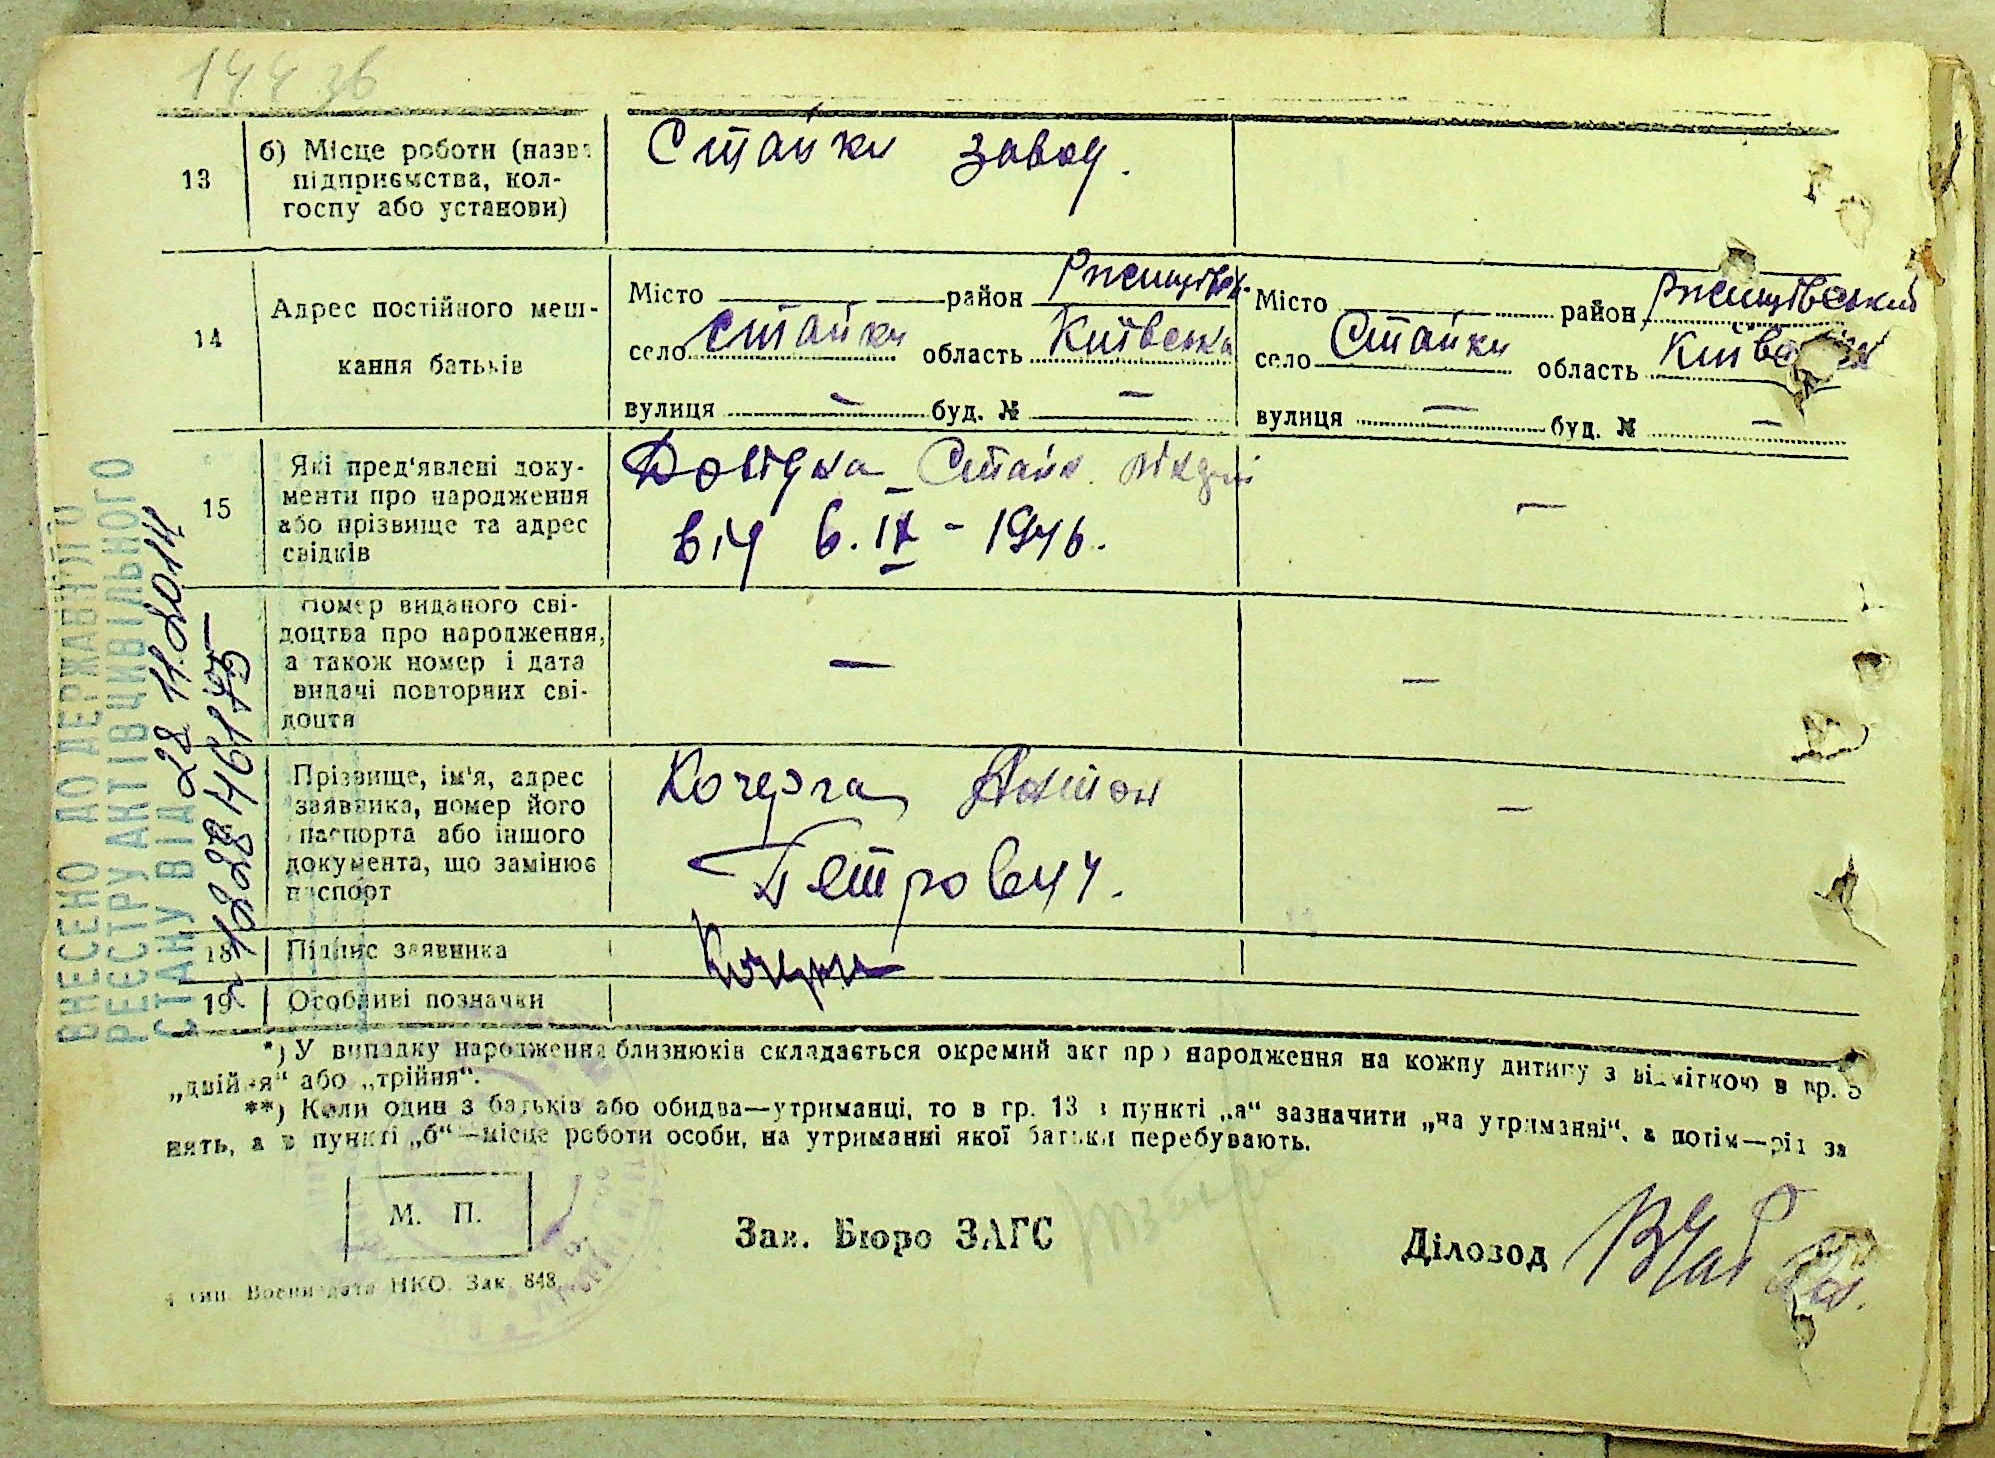 144 зв
13
б) Місце роботи (назва
підприємства, кол-
госпу або установи)
Стайки завод.
14
Адрес постійного меш-
кання батьків
Місто — район Ржищівськ.
село Стайки область Київська
вулиця — буд. № —
Місто район Ржищівський
село Стайки область Київська
вулиця — буд. № —
15
Які пред'явлені доку-
менти про народження
або прізвище та адрес
свідків
Довідка Стайк.
від 6.IX - 1946.
—
Номер виданого сві-
доцтва про народження,
а також номер і дата
видачі повторних сві-
доцтв
—
—
Прізвище, ім'я, адрес
заявника, номер його
паспорта або іншого
документа, що замінює
паспорт
Кочерга Антон
Петрович.
—
18
Підпис заявника
19
Особливі позначки
ВНЕСЕНО ДО ДЕРЖАВНОГО
РЕЄСТРУ АКТІВ ЦИВІЛЬНОГО
СТАНУ ВІД 28.11.2014
*) У випадку народження близнюків складається окремий акт про народження на кожну дитину з відміткою в гр. 5
„двійня“ або „трійня“.
**) Коли один з батьків або обидва—утриманці, то в гр. 13 в пункті „а“ зазначити „на утриманні“, а потім—рід за
нять, а в пункті „б“—місце роботи особи, на утриманні якої батьки перебувають.
М. П.
Зав. Бюро ЗАГС
Діловод
4 тип. Воениздата НКО. Зак. 848